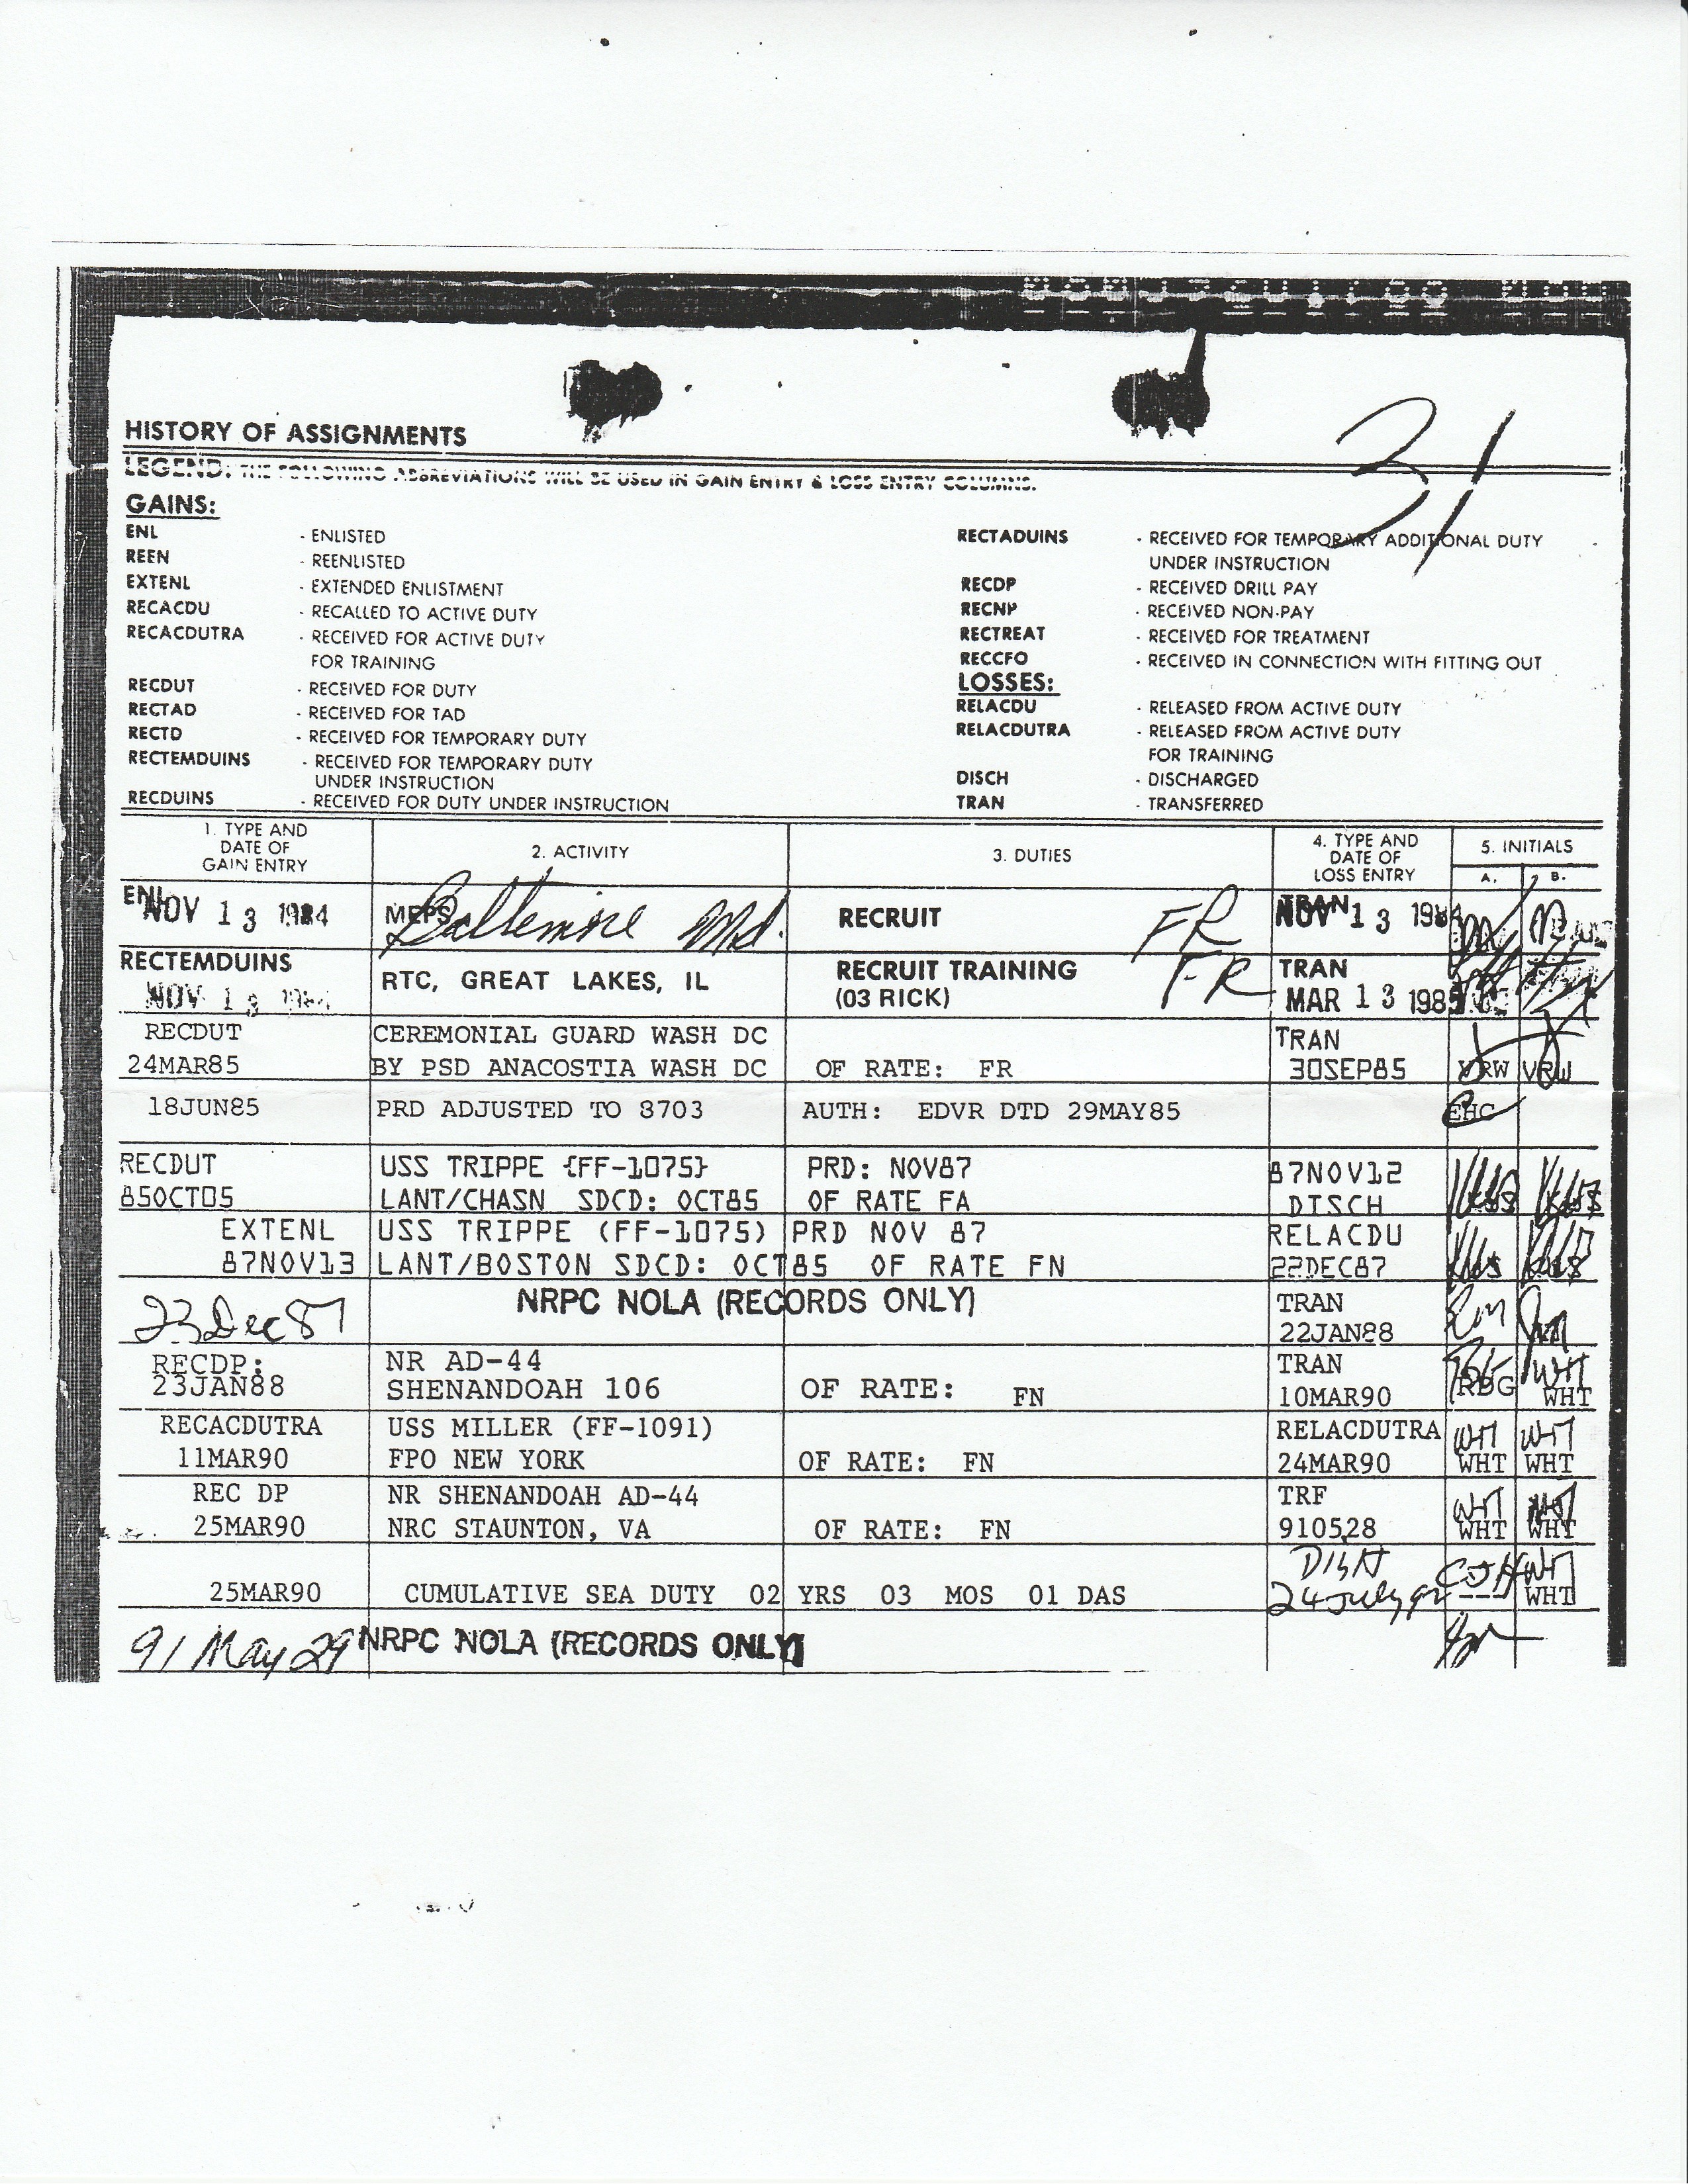 31
HISTORY OF ASSIGNMENTS
LEGEND: THE FOLLOWING ABBREVIATIONS WILL BE USED IN GAIN ENTRY & LOSS ENTRY COLUMNS.
GAINS:
ENL - ENLISTED
REEN - REENLISTED
EXTENL - EXTENDED ENLISTMENT
RECACDU - RECALLED TO ACTIVE DUTY
RECACDUTRA - RECEIVED FOR ACTIVE DUTY
FOR TRAINING
RECDUT - RECEIVED FOR DUTY
RECTAD - RECEIVED FOR TAD
RECTD - RECEIVED FOR TEMPORARY DUTY
RECTEMDUINS - RECEIVED FOR TEMPORARY DUTY
UNDER INSTRUCTION
RECDUINS - RECEIVED FOR DUTY UNDER INSTRUCTION
RECTADUINS - RECEIVED FOR TEMPORARY ADDITIONAL DUTY
UNDER INSTRUCTION
RECDP - RECEIVED DRILL PAY
RECNP - RECEIVED NON-PAY
RECTREAT - RECEIVED FOR TREATMENT
RECCFO - RECEIVED IN CONNECTION WITH FITTING OUT
LOSSES:
RELACDU - RELEASED FROM ACTIVE DUTY
RELACDUTRA - RELEASED FROM ACTIVE DUTY
FOR TRAINING
DISCH - DISCHARGED
TRAN - TRANSFERRED
1. TYPE AND DATE OF GAIN ENTRY 2. ACTIVITY 3. DUTIES 4. TYPE AND DATE OF LOSS ENTRY 5. INITIALS
A. B.
ENL TRAN
NOV 13 1984 MEPS Baltimore Md. RECRUIT FR NOV 13 1984
RECTEMDUINS RTC, GREAT LAKES, IL RECRUIT TRAINING FR TRAN
NOV 13 1984 (03 RICK) MAR 13 1985
RECDUT CEREMONIAL GUARD WASH DC TRAN
24MAR85 BY PSD ANACOSTIA WASH DC OF RATE: FR 30SEP85 VRW VRW
18JUN85 PRD ADJUSTED TO 8703 AUTH: EDVR DTD 29MAY85 EHC
RECDUT USS TRIPPE {FF-1075} PRD: NOV87 87NOV12
85OCT05 LANT/CHASN SDCD: OCT85 OF RATE FA DISCH
EXTENL USS TRIPPE (FF-1075) PRD NOV 87 RELACDU
87NOV13 LANT/BOSTON SDCD: OCT85 OF RATE FN 22DEC87
23 Dec 87 NRPC NOLA (RECORDS ONLY) TRAN
22JAN88
RECDP: NR AD-44 TRAN
23JAN88 SHENANDOAH 106 OF RATE: FN 10MAR90 RDG WHT
RECACDUTRA USS MILLER (FF-1091) RELACDUTRA WHT WHT
11MAR90 FPO NEW YORK OF RATE: FN 24MAR90 WHT WHT
REC DP NR SHENANDOAH AD-44 TRF WHT WHT
25MAR90 NRC STAUNTON, VA OF RATE: FN 910528 WHT WHT
25MAR90 CUMULATIVE SEA DUTY 02 YRS 03 MOS 01 DAS 24 July 92 --- WHT
91 May 29 NRPC NOLA (RECORDS ONLY)